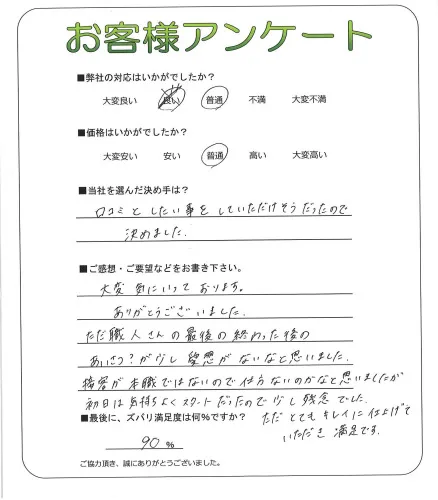 お客様アンケート
■弊社の対応はいかがでしたか?
大変良い 良い 普通 不満 大変不満
■価格はいかがでしたか?
大変安い 安い 普通 高い 大変高い
■当社を選んだ決め手は?
口コミとしたい事をしていただけそうだったので
決めました.
■ご感想・ご要望などをお書き下さい。
大変 気にいって おります。
ありがとうございました.
ただ職人さんの最後の終わった後の
あいさつ?が少し愛想がないなと思いました.
接客が本職ではないので仕方ないのかなと思いましたが
初日は気持ちよくスタートだったので少し残念でした.
■最後に、ズバリ満足度は何%ですか?
ただ とてもキレイに仕上げて
いただき 満足です.
90 %
ご協力頂き、誠にありがとうございました。